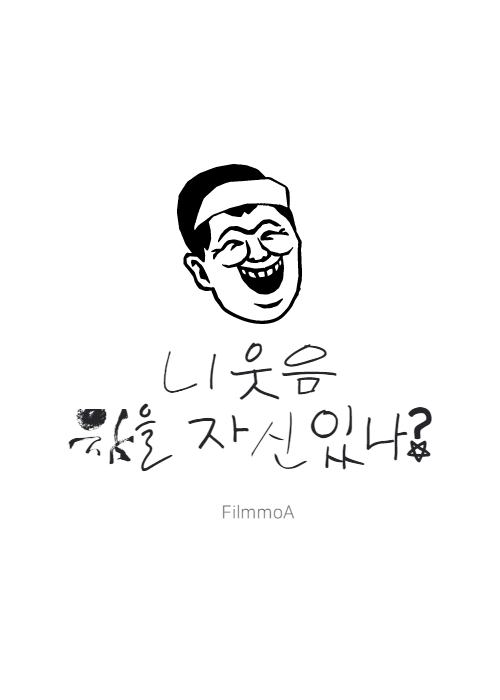 니 웃음
참을 자신있나?
FilmmoA